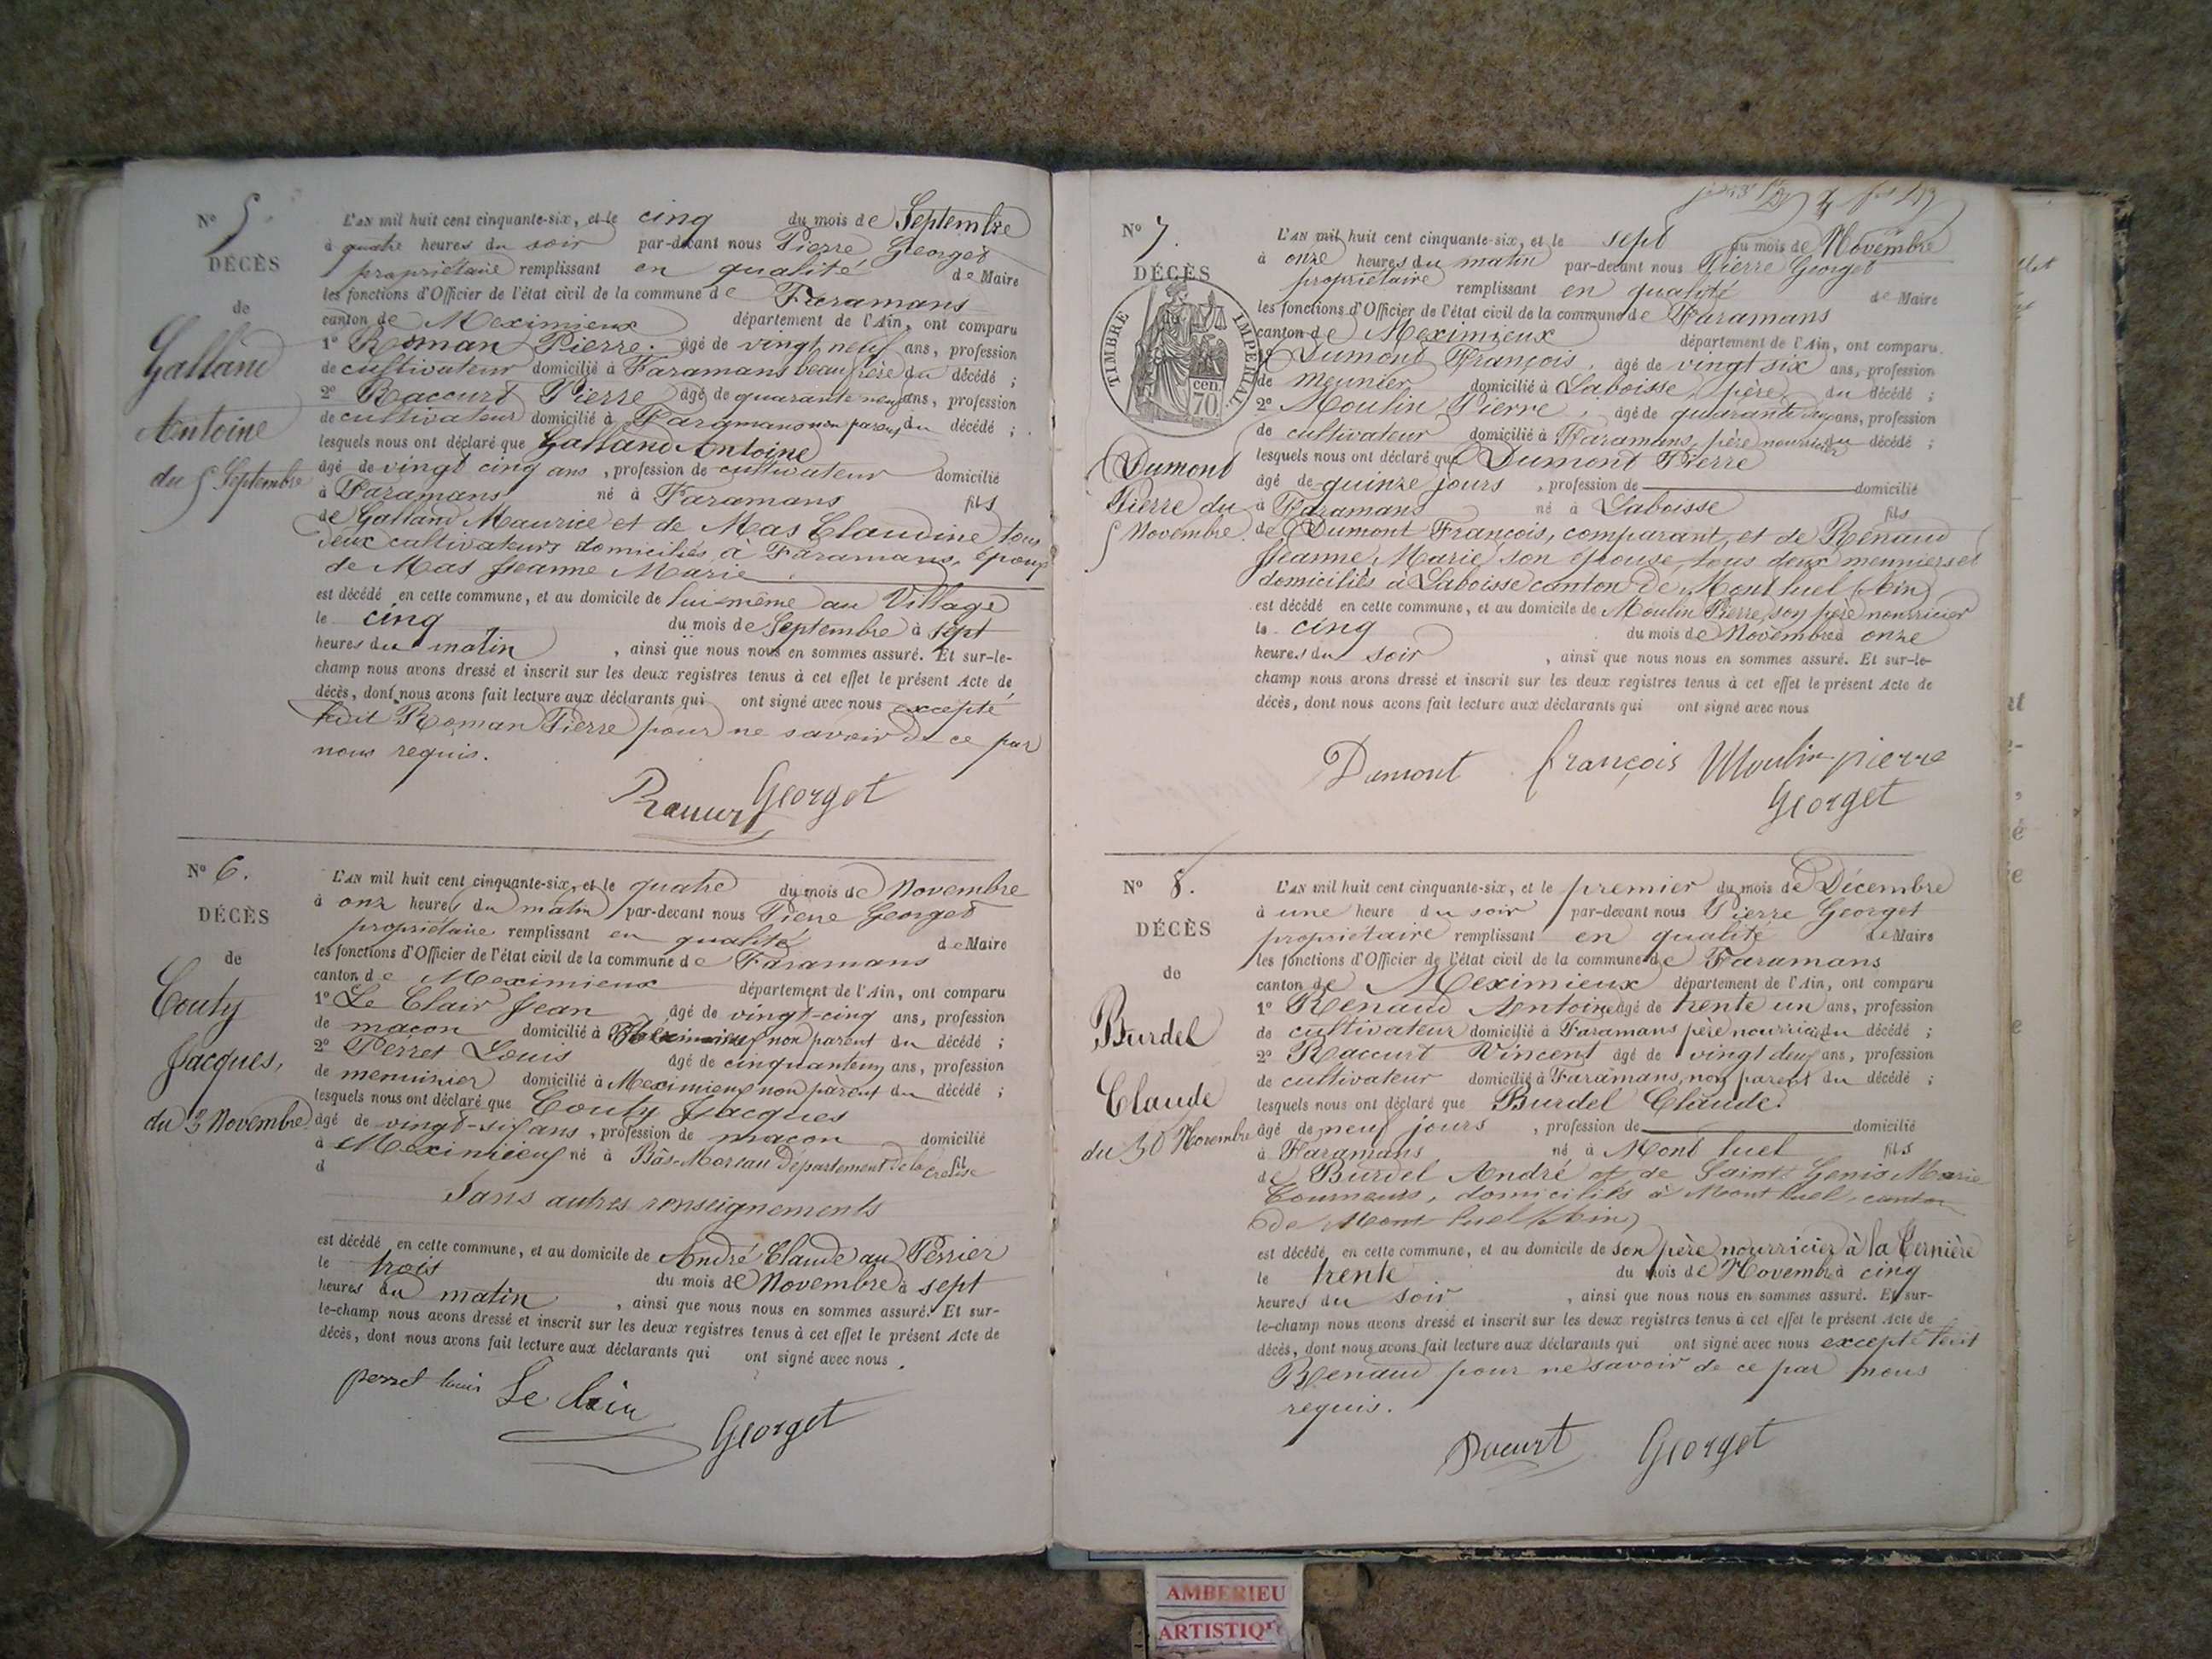 N° 5.
DÉCÈS
de
Galland
Antoine
du 5 Septembre
L'AN mil huit cent cinquante-six, et le cinq du mois de Septembre
à quatre heures du soir par-devant nous Pierre Georget
propriétaire remplissant en qualité de Maire
les fonctions d'Officier de l'état civil de la commune de Faramans
canton de Meximieux département de l'Ain, ont comparu
1° Roman Pierre. âgé de vingt neuf ans, profession
de cultivateur domicilié à Faramans beau frère du décédé ;
2° Raccurt Pierre âgé de quarante neuf ans, profession
de cultivateur domicilié à Faramans non parent du décédé ;
lesquels nous ont déclaré que Galland Antoine
âgé de vingt cinq ans, profession de cultivateur domicilié
à Faramans né à Faramans fils
de Galland Maurice et de Mas Claudine tous
deux cultivateurs domiciliés à Faramans, époux
de Mas Jeanne Marie
est décédé en cette commune, et au domicile de lui-même au Village
le cinq du mois de Septembre à sept
heures du matin, ainsi que nous nous en sommes assuré. Et sur-le-
champ nous avons dressé et inscrit sur les deux registres tenus à cet effet le présent Acte de
décès, dont nous avons fait lecture aux déclarants qui ont signé avec nous excepté
ledit Roman Pierre pour ne savoir de ce par
nous requis.
Georget
N° 6.
DÉCÈS
de
Couty
Jacques,
du 3 Novembre
L'AN mil huit cent cinquante-six, et le quatre du mois de Novembre
à onz heures du matin par-devant nous Pierre Georget
propriétaire remplissant en qualité de Maire
les fonctions d'Officier de l'état civil de la commune de Faramans
canton de Meximieux département de l'Ain, ont comparu
1° Le Clair Jean âgé de vingt-cinq ans, profession
de maçon domicilié à Meximieux non parent du décédé ;
2° Perret Louis âgé de cinquante un ans, profession
de menuisier domicilié à Meximieux non parent du décédé ;
lesquels nous ont déclaré que Couty Jacques
âgé de vingt-six ans, profession de maçon domicilié
à Meximieux né à Bas-Moreau Département de la Creuse fil
d
Sans autres renseignements
est décédé en cette commune, et au domicile de André Claude au Perrier
le trois du mois de Novembre à sept
heures du matin, ainsi que nous nous en sommes assuré. Et sur-
le-champ nous avons dressé et inscrit sur les deux registres tenus à cet effet le présent Acte de
décès, dont nous avons fait lecture aux déclarants qui ont signé avec nous.
perret louis Le Clair
Georget
N° 7.
DÉCÈS
TIMBRE IMPÉRIAL
70 cen.
Dumont
Pierre du
5 Novembre.
L'AN mil huit cent cinquante-six, et le sept du mois de Novembre
à onze heures du matin par-devant nous Pierre Georget
propriétaire remplissant en qualité de Maire
les fonctions d'Officier de l'état civil de la commune de Faramans
canton de Meximieux département de l'Ain, ont comparu
1° Dumont François, âgé de vingt six ans, profession
de meunier domicilié à Laboisse, père du décédé ;
2° Moulin Pierre, âgé de quarante ans, profession
de cultivateur domicilié à Faramans, père nourricier du décédé ;
lesquels nous ont déclaré que Dumont Pierre
âgé de quinze jours, profession de domicilié
à Faramans né à Laboisse fils
de Dumont François, comparant, et de Renaud
Jeanne Marie son épouse, tous deux meuniers et
domiciliés à Laboisse canton de Mont luel (Ain)
est décédé en cette commune, et au domicile de Moulin Pierre, son père nourricier
le cinq du mois de Novembre à onze
heures du soir, ainsi que nous nous en sommes assuré. Et sur-le-
champ nous avons dressé et inscrit sur les deux registres tenus à cet effet le présent Acte de
décès, dont nous avons fait lecture aux déclarants qui ont signé avec nous
Dumont françois Moulin pierre
Georget
N° 8.
DÉCÈS
de
Burdel
Claude
du 30 Novembre
L'AN mil huit cent cinquante-six, et le premier du mois de Décembre
à une heure du soir par-devant nous Pierre Georget
propriétaire remplissant en qualité de Maire
les fonctions d'Officier de l'état civil de la commune de Faramans
canton de Meximieux département de l'Ain, ont comparu
1° Renaud Antoine âgé de trente un ans, profession
de cultivateur domicilié à Faramans père nourricier du décédé ;
2° Raccurt Vincent âgé de vingt deux ans, profession
de cultivateur domicilié à Faramans, non parent du décédé ;
lesquels nous ont déclaré que Burdel Claude.
âgé de neuf jours, profession de domicilié
à Faramans né à Mont luel fils
de Burdel André et de Saint Genis Marie
Tourneurs, domiciliés à Mont luel, canton
de Mont luel (Ain)
est décédé en cette commune, et au domicile de son père nourricier à la Cernière
le trente du mois de Novembre à cinq
heures du soir, ainsi que nous nous en sommes assuré. Et sur-
le-champ nous avons dressé et inscrit sur les deux registres tenus à cet effet le présent Acte de
décès, dont nous avons fait lecture aux déclarants qui ont signé avec nous excepté ledit
Renaud pour ne savoir de ce par nous
requis.
Georget
AMBERIEU
ARTISTIQ